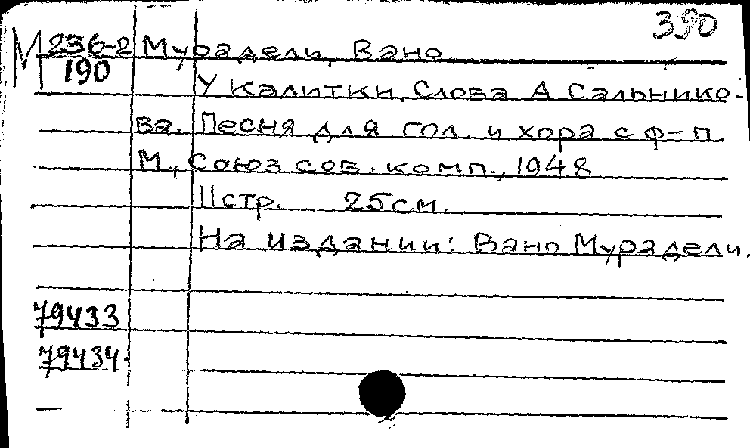 390
М 236-2 Мурадели, Вано
190
У калитки. Слова А. Сальнико-
ва. Песня для гол. и хора с ф-п.
М., Союз сов. комп., 1948
11стр. 25см.
На издании: Вано Мурадели.
79433
79434